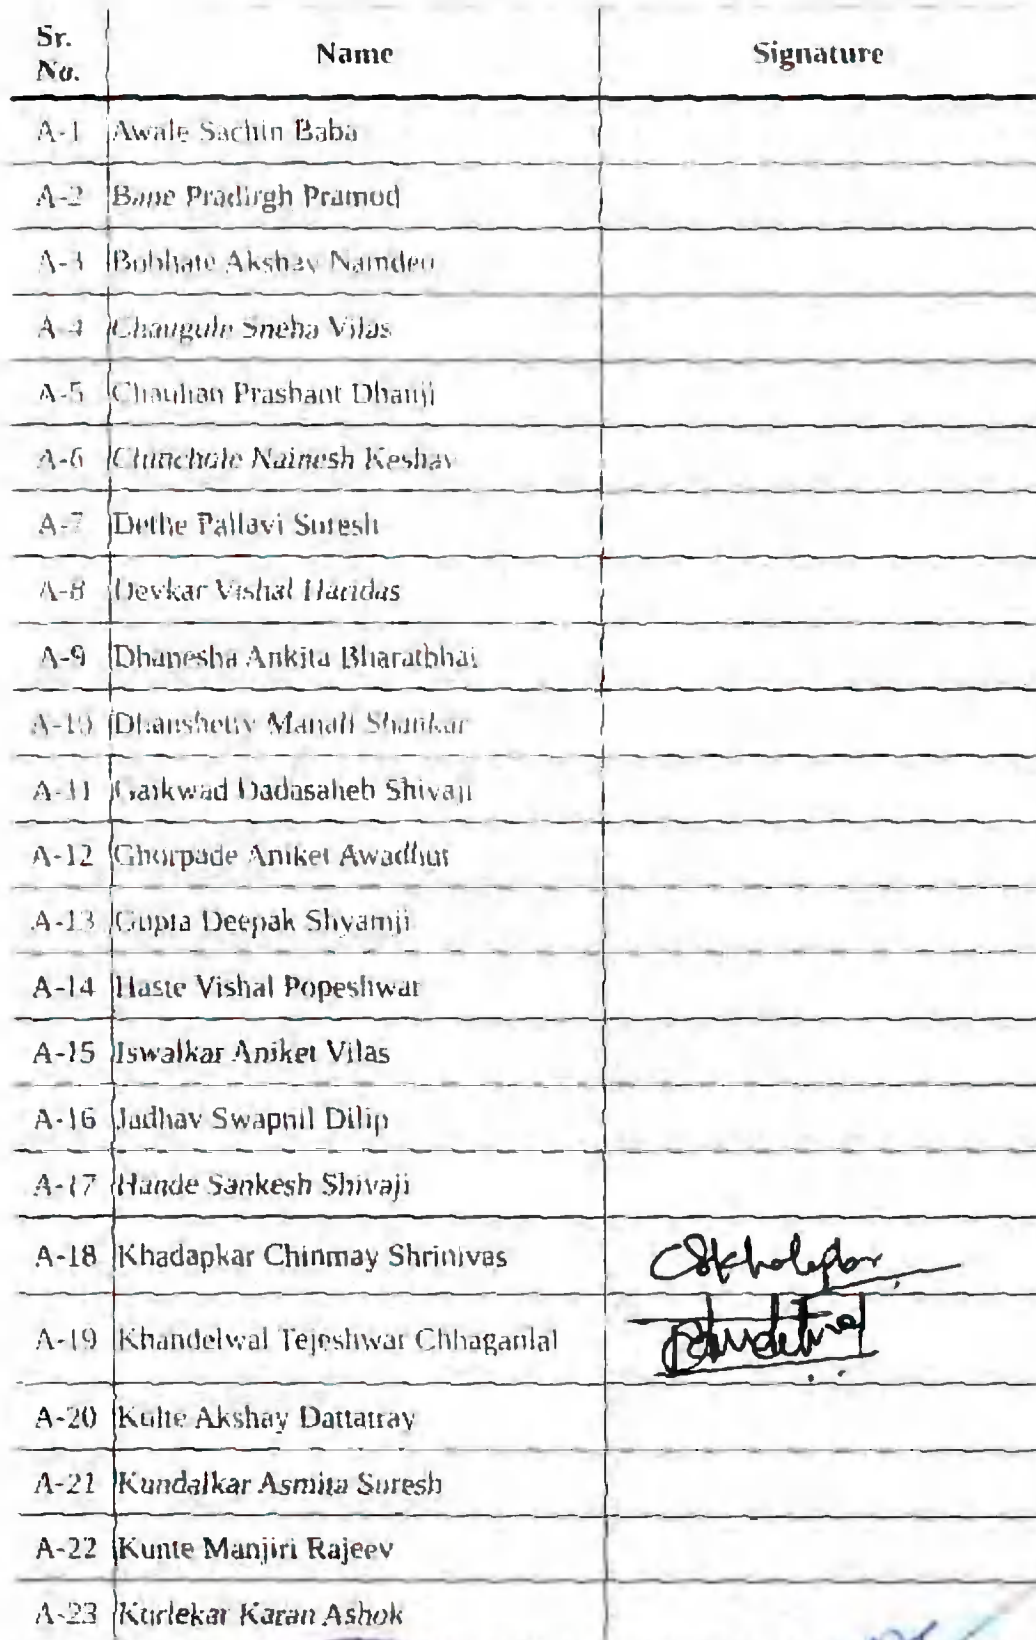 Sr. No. Name Signature
A-1 Awale Sachin Baba
A-2 Bane Pradirgh Pramod
A-3 Bobhate Akshay Namdeo
A-4 Chaugule Sneha Vilas
A-5 Chauhan Prashant Dhanji
A-6 Nainesh Keshav
A-7 Dethe Pallavi Suresh
A-8 Devkar Vishal Haridas
A-9 Dhanesha Ankita Bharatbhai
A-10 Dhanshetty Manali Shankar
A-11 Gaikwad Dadasaheb Shivaji
A-12 Ghorpade Aniket Awadhut
A-13 Gupta Deepak Shyamji
A-14 Haste Vishal Popeshwar
A-15 Iswalkar Aniket Vilas
A-16 Jadhav Swapnil Dilip
A-17 Hande Sankesh Shivaji
A-18 Khadapkar Chinmay Shrinivas
A-19 Khandelwal Tejeshwar Chhaganlal
A-20 Kolte Akshay Dattatray
A-21 Kundalkar Asmita Suresh
A-22 Kunte Manjiri Rajeev
A-23 Kurlekar Karan Ashok